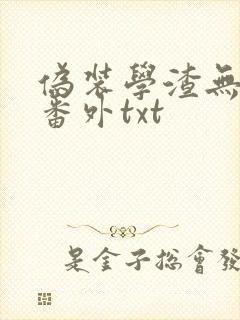 偽裝學渣無
番外txt
是金子總會發